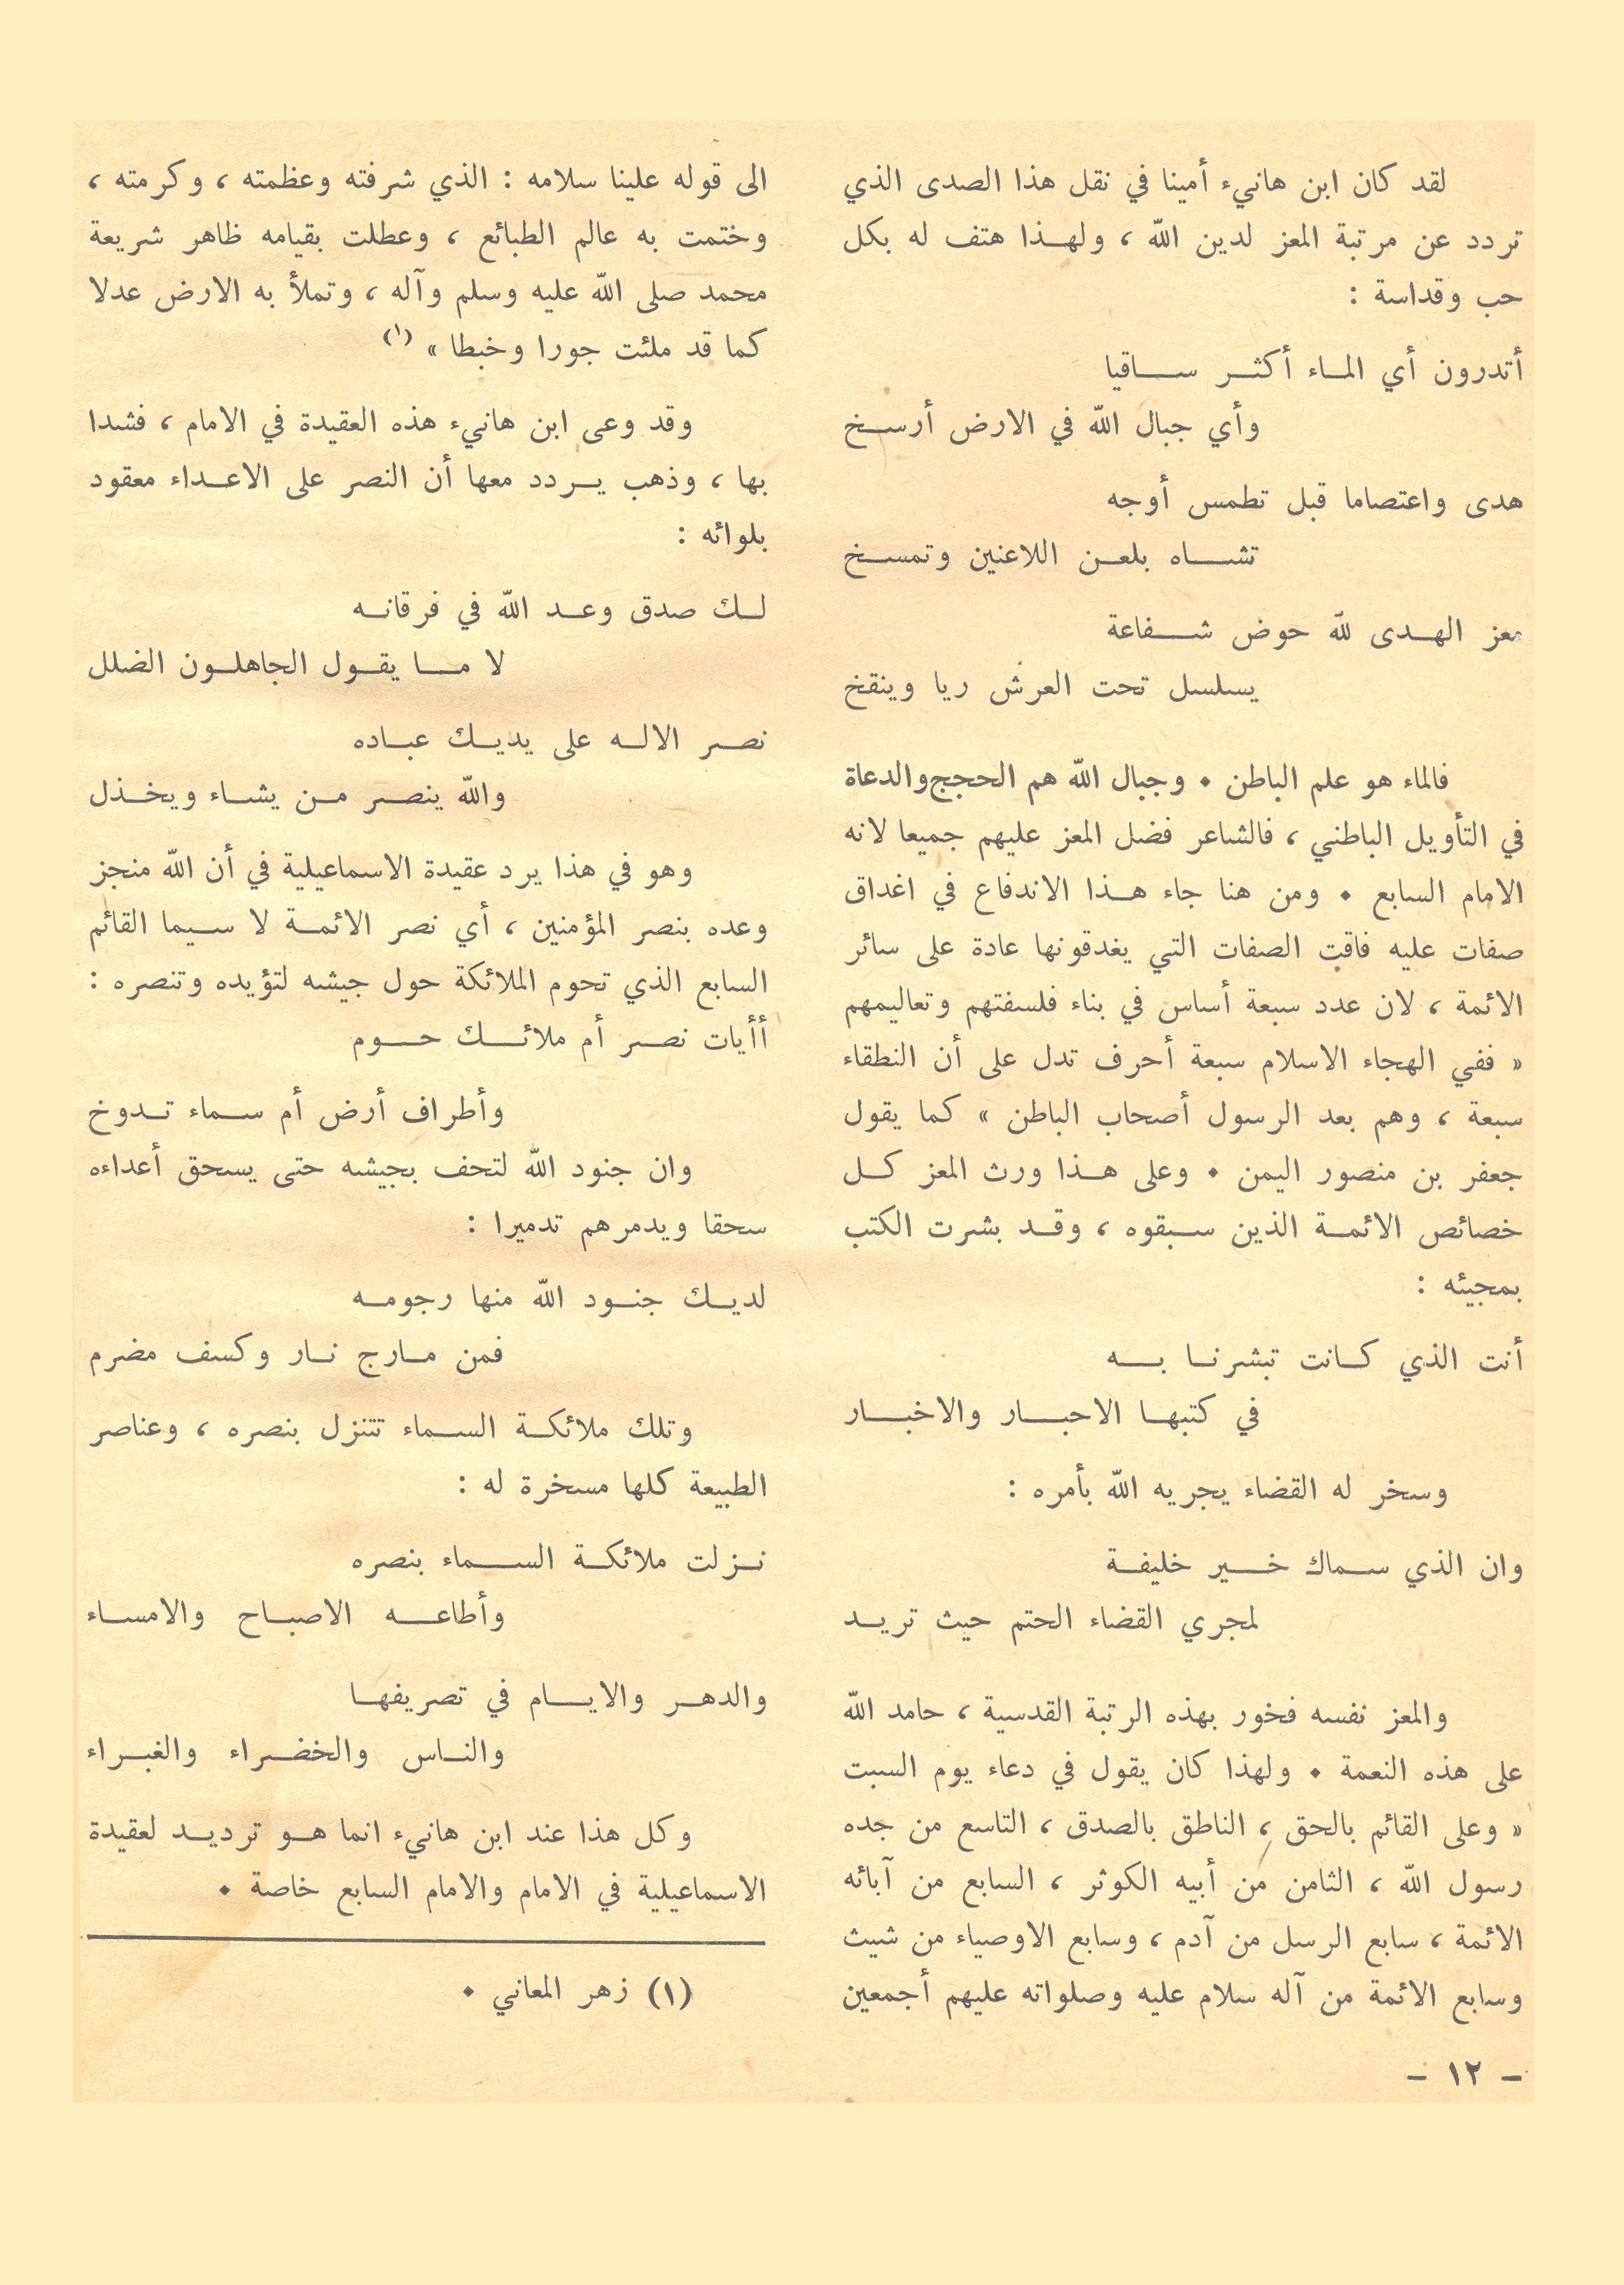 لقد كان ابن هانيء أمينا في نقل هذا الصدى الذي
تردد عن مرتبة المعز لدين الله ، ولهذا هتف له بكل
حب وقداسة :
أتدرون أي الماء أكثر ساقيا
وأي جبال الله في الارض أرسخ
هدى واعتصاما قبل تطمس أوجه
تشاه بلعن اللاعنين وتمسخ
معز الهدى لله حوض شفاعة
يسلسل تحت العرش ريا وينقخ
فالماء هو علم الباطن . وجبال الله هم الحجج والدعاة
في التأويل الباطني ، فالشاعر فضل المعز عليهم جميعا لانه
الامام السابع . ومن هنا جاء هذا الاندفاع في اغداق
صفات عليه فاقت الصفات التي يغدقونها عادة على سائر
الائمة ، لان عدد سبعة أساس في بناء فلسفتهم وتعاليمهم
« ففي الهجاء الاسلام سبعة أحرف تدل على أن النطقاء
سبعة ، وهم بعد الرسول أصحاب الباطن » كما يقول
جعفر بن منصور اليمن . وعلى هذا ورث المعز كل
خصائص الائمة الذين سبقوه ، وقد بشرت الكتب
بمجيئه :
أنت الذي كانت تبشرنا به
في كتبها الاحبار والاخبار
وسخر له القضاء يجريه الله بأمره :
وان الذي سماك خير خليفة
لمجري القضاء الحتم حيث تريد
والمعز نفسه فخور بهذه الرتبة القدسية ، حامد الله
على هذه النعمة . ولهذا كان يقول في دعاء يوم السبت
« وعلى القائم بالحق ، الناطق بالصدق ، التاسع من جده
رسول الله ، الثامن من أبيه الكوثر ، السابع من آبائه
الائمة ، سابع الرسل من آدم ، وسابع الاوصياء من شيث
وسابع الائمة من آله سلام عليه وصلواته عليهم أجمعين
الى قوله علينا سلامه : الذي شرفته وعظمته ، وكرمته ،
وختمت به عالم الطبائع ، وعطلت بقيامه ظاهر شريعة
محمد صلى الله عليه وسلم وآله ، وتملأ به الارض عدلا
كما قد ملئت جورا وخبطا » (١)
وقد وعى ابن هانيء هذه العقيدة في الامام ، فشدا
بها ، وذهب يردد معها أن النصر على الاعداء معقود
بلوائه :
لك صدق وعد الله في فرقانه
لا ما يقول الجاهلون الضلل
نصر الاله على يديك عباده
والله ينصر من يشاء ويخذل
وهو في هذا يرد عقيدة الاسماعيلية في أن الله منجز
وعده بنصر المؤمنين ، أي نصر الائمة لا سيما القائم
السابع الذي تحوم الملائكة حول جيشه لتؤيده وتنصره :
أأيات نصر أم ملائك حوم
وأطراف أرض أم سماء تدوخ
وان جنود الله لتحف بجيشه حتى يسحق أعداءه
سحقا ويدمرهم تدميرا :
لديك جنود الله منها رجومه
فمن مارج نار وكسف مضرم
وتلك ملائكة السماء تتنزل بنصره ، وعناصر
الطبيعة كلها مسخرة له :
نزلت ملائكة السماء بنصره
وأطاعه الاصباح والامساء
والدهر والايام في تصريفها
والناس والخضراء والغبراء
وكل هذا عند ابن هانيء انما هو ترديد لعقيدة
الاسماعيلية في الامام والامام السابع خاصة .
(١) زهر المعاني .
– ١٢ –